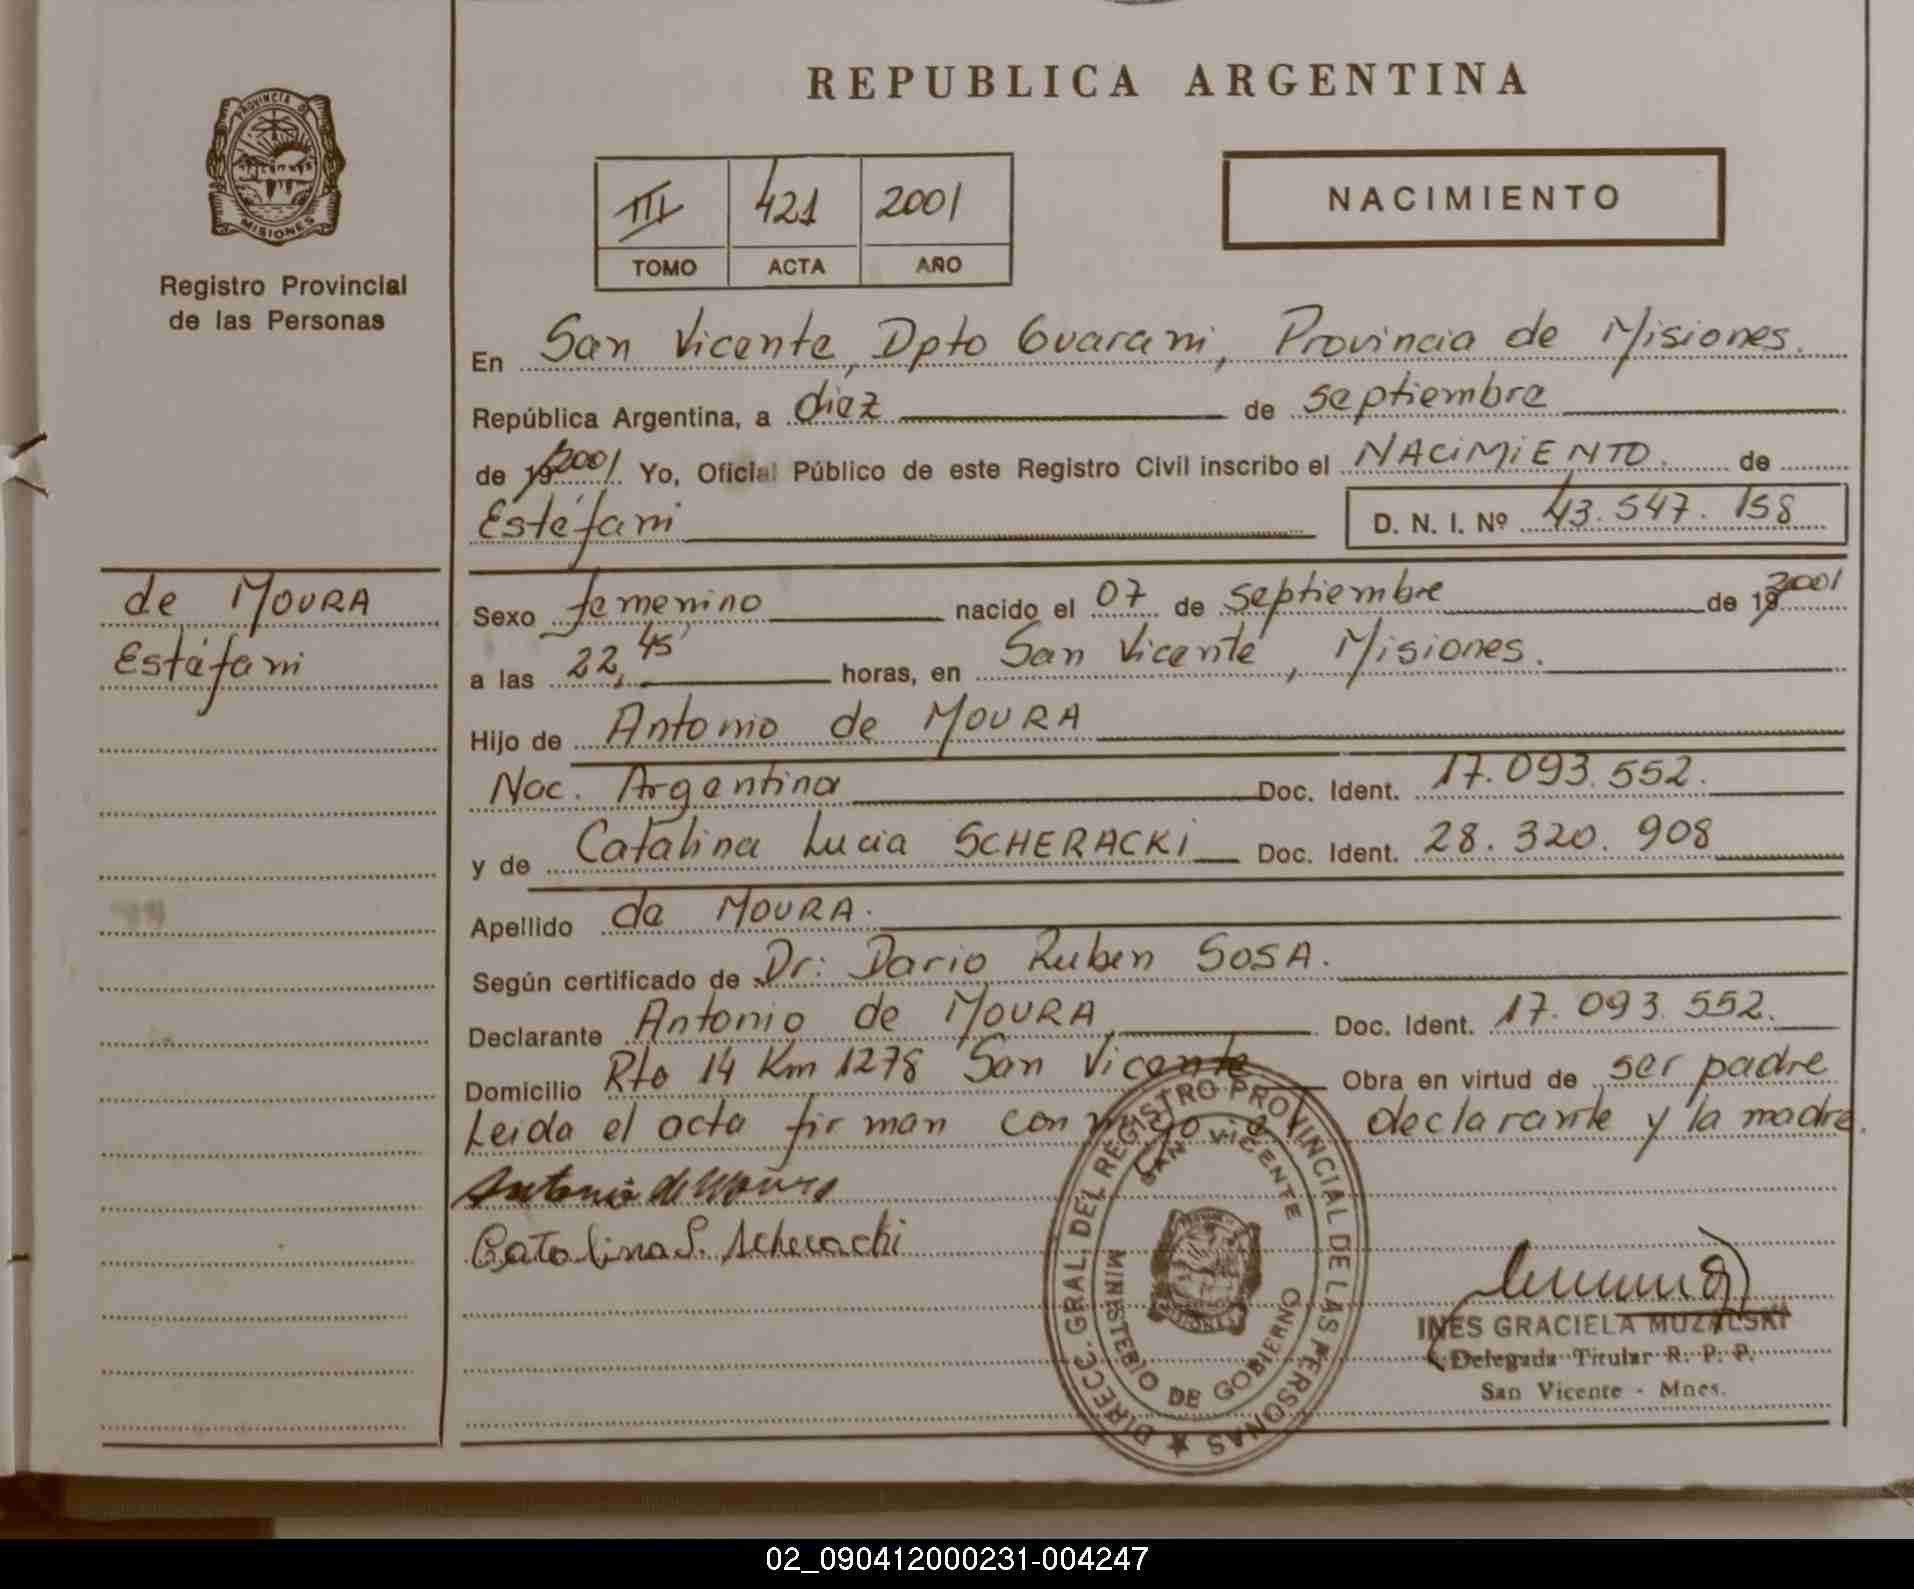 REPUBLICA ARGENTINA
PROVINCIA DE MISIONES
Registro Provincial
de las Personas
III 421 2001
TOMO ACTA AÑO
NACIMIENTO
En San Vicente, Dpto Guarani, Provincia de Misiones.
República Argentina, a diez de septiembre
de 192001 Yo, Oficial Público de este Registro Civil inscribo el NACIMIENTO. de
Estéfani D. N. I. Nº 43.547.158
de MOURA
Estéfani
Sexo femenino nacido el 07 de septiembre de 192001
a las 22,45' horas, en San Vicente, Misiones.
Hijo de Antonio de MOURA
Nac. Argentina Doc. Ident. 17.093.552.
y de Catalina Lucia SCHERACKI Doc. Ident. 28.320.908
Apellido de MOURA.
Según certificado de Dr: Dario Ruben SOSA.
Declarante Antonio de MOURA Doc. Ident. 17.093.552.
Domicilio Rta 14 Km 1278 San Vicente Obra en virtud de ser padre
Leida el acta firman conmigo el declarante y la madre.
Antonio de Moura
Catalina L. Scheracki
DIRECC. GRAL. DEL REGISTRO PROVINCIAL DE LAS PERSONAS
SAN VICENTE
MINISTERIO DE GOBIERNO
INES GRACIELA MUZALSKI
Delegada Titular R. P. P.
San Vicente - Mnes.
02_090412000231-004247